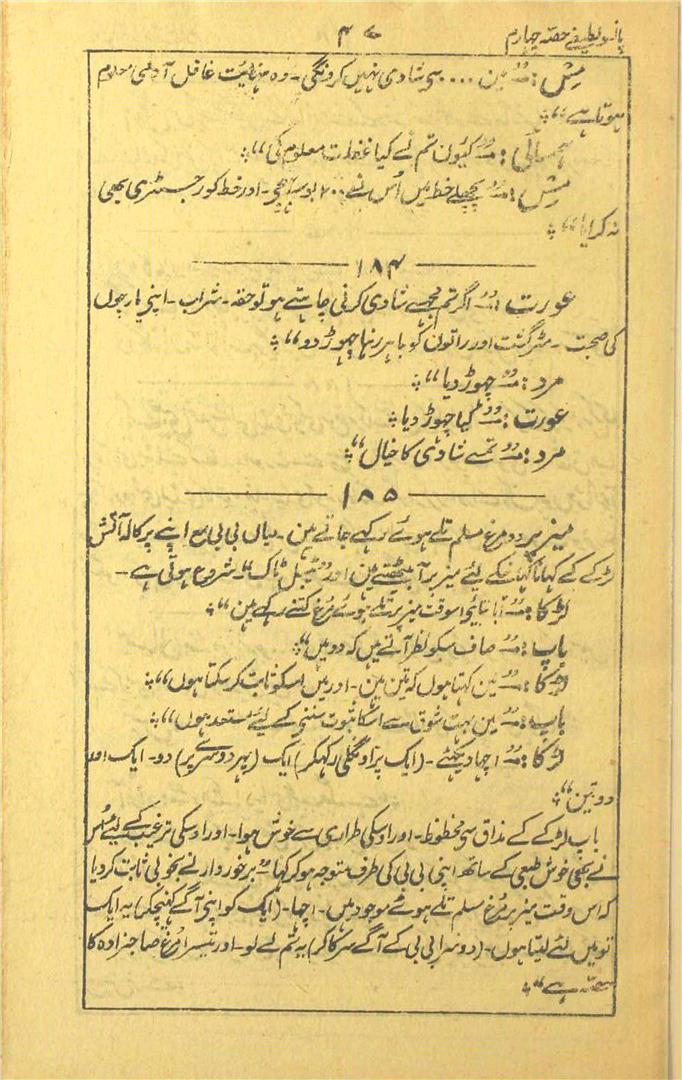 پانسو لطیفے حصہ چہارم ۴۷
مِس: ”مین .... سے شادی نہیں کرونگی۔ وہ نہایت غافل آدمی معلوم
ہوتا ہے“
ہمسائی: ”کیون تم نے کیا غفلت معلوم کی“
مِس: ”پچھلے خط میں اُس نے ۷۰۰ بوسہ بھیجے۔ اور خط کو رجسٹری بھی
نہ کرایا“
۱۸۴
عورت: ”اگر تم مجھسے شادی کرنی چاہتے ہو تو حقہ۔ شراب۔ اپنے یارچون
کی صحبت۔ مٹرگشت اور راتون کو باہر رہنا چہوڑ دو“
مرد: ”چہوڑ دیا“
عورت: ”کیا چہوڑ دیا
مرد: ”تمسے شادی کا خیال“
۱۸۵
میز پر دو مرغ مسلم تلے ہوئے رکہے جاتے ہین۔ میاں بی بی مع اپنے پرکالہ آتش
لڑکے کے کہانا کہانے کے لئے میز پر آ بیٹھتے ہین اور ”ٹیبل ٹاک“ شروع ہوتی ہے۔
لڑکا: ”ابا بتائیو اسوقت میز پر تلے ہوئے مُرغ کتنے رکہے ہین“
باپ: ”صاف سبکو نظر آتے ہیں کہ دو ہیں“
لڑکا: ”مین کہتا ہوں کہ تین ہین۔ اور میں اسکو ثابت کر سکتا ہوں“
باپ: ”مین بہت شوق سے اسکا ثبوت سننے کے لئے مستعد ہوں“
لڑکا: ”اچہا دیکھئے۔ (ایک پر اونگلی رکہکر) ایک (پہر دوسرے پر) دو۔ ایک اور
دو تین“
باپ لڑکے کے مذاق سے محظوظ۔ اور اوسکی طراری سے خوش ہوا۔ اور اوسکی ترغیب کے لئے
نے بھی خوش طبعی کے ساتھ اپنی بی بی کی طرف متوجہ ہو کر کہا ”برخوردار نے بخوبی ثابت کر دیا
کہ اس وقت میز پر مرغ مسلم تلے ہوئے موجود ہیں۔ اچہا۔ (ایک کو اپنے آگے کھینچکر) یہ ایک
تو میں لئے لیتا ہوں۔ (دوسرا بی بی کے آگے سرکا کر) یہ تم لے لو۔ اور تیسرا مُرغ صاحبزادہ کا
حصہ ہے“